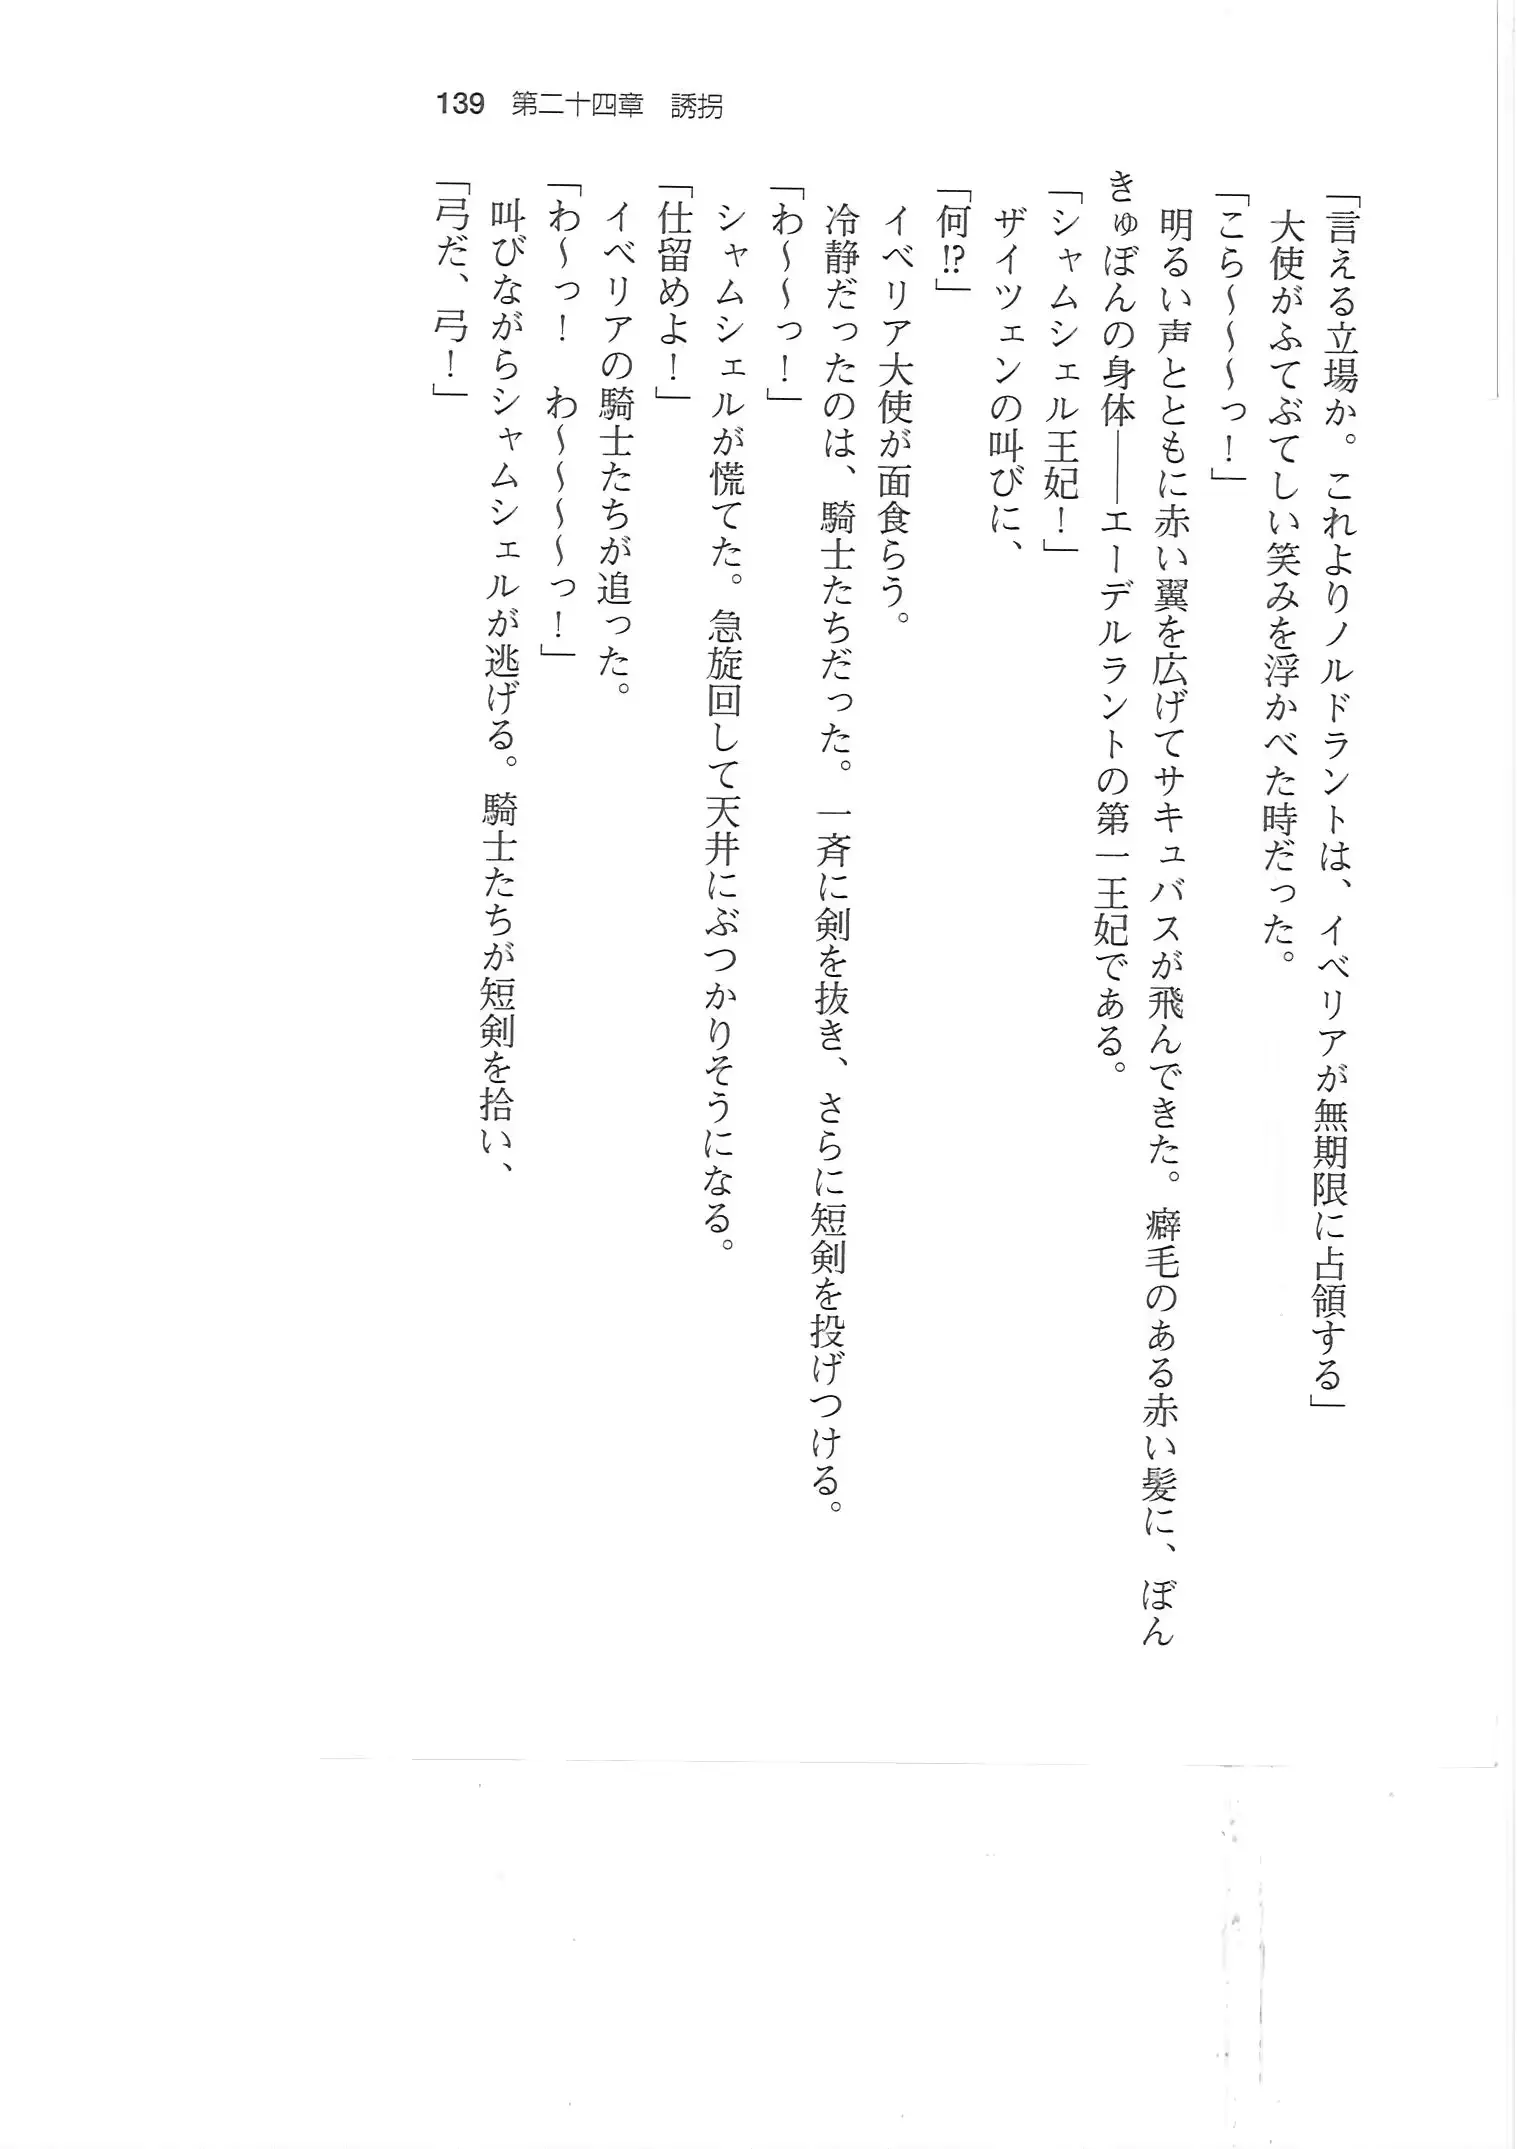 139 第二十四章 誘拐
「言える立場か。これよりノルドラントは、イベリアが無期限に占領する」
大使がふてぶてしい笑みを浮かべた時だった。
「こら～～～っ！」
明るい声とともに赤い翼を広げてサキュバスが飛んできた。癖毛のある赤い髪に、ぼん
きゅぼんの身体――エーデルラントの第一王妃である。
「シャムシェル王妃！」
ザイツェンの叫びに、
「何!?」
イベリア大使が面食らう。
冷静だったのは、騎士たちだった。一斉に剣を抜き、さらに短剣を投げつける。
「わ～～っ！」
シャムシェルが慌てた。急旋回して天井にぶつかりそうになる。
「仕留めよ！」
イベリアの騎士たちが追った。
「わ～っ！　わ～～～～っ！」
叫びながらシャムシェルが逃げる。騎士たちが短剣を拾い、
「弓だ、弓！」